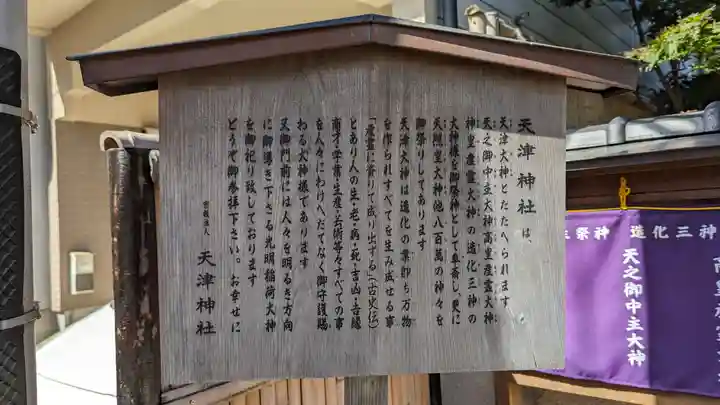 天津神社は、
天津大神とたたへられます
天之御中主大神高皇産霊大神
神皇産霊大神の造化三神の
大神様を御祭神として奉斎し、更に
天照皇大神他八百萬の神々を
御祭りしてあります
天津大神は造化の業即ち万物
を作られすべてを生み成せる事
「産霊に寄りて成り出ずる」(古史伝)
とあり人の生・老・病・死・吉凶・善縁
商才・学術・生産・芸術等々すべての事
を人々にわけへだてなく御守護賜
わる大神様であります
又御門前には人々を明るき方向
に御導き下さる光明稲荷大神
を御祀り致しております
どうぞ御参拝下さい。お幸せに
宗教法人 天津神社
主祭神 造化三神
天之御中主大神